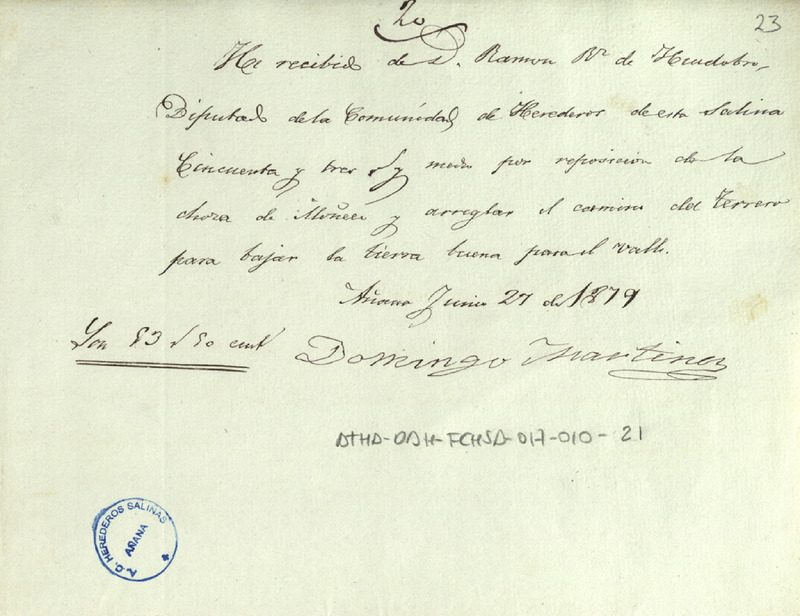 20
23
He recibido de D. Ramon Rz de Huidobro,
Diputado de la Comunidad de Herederos de esta Salina
Cincuenta y tres r y medio por reposicion de la
choza de y arreglar el camino del Terrero
para bajar la tierra buena para el valle.
Añana Junio 27 de 1879
Son 53 r 50 cent Domingo Martinez
ATHA-DAH-FCHSA-017-010-21
A.C. HEREDEROS SALINAS
AÑANA